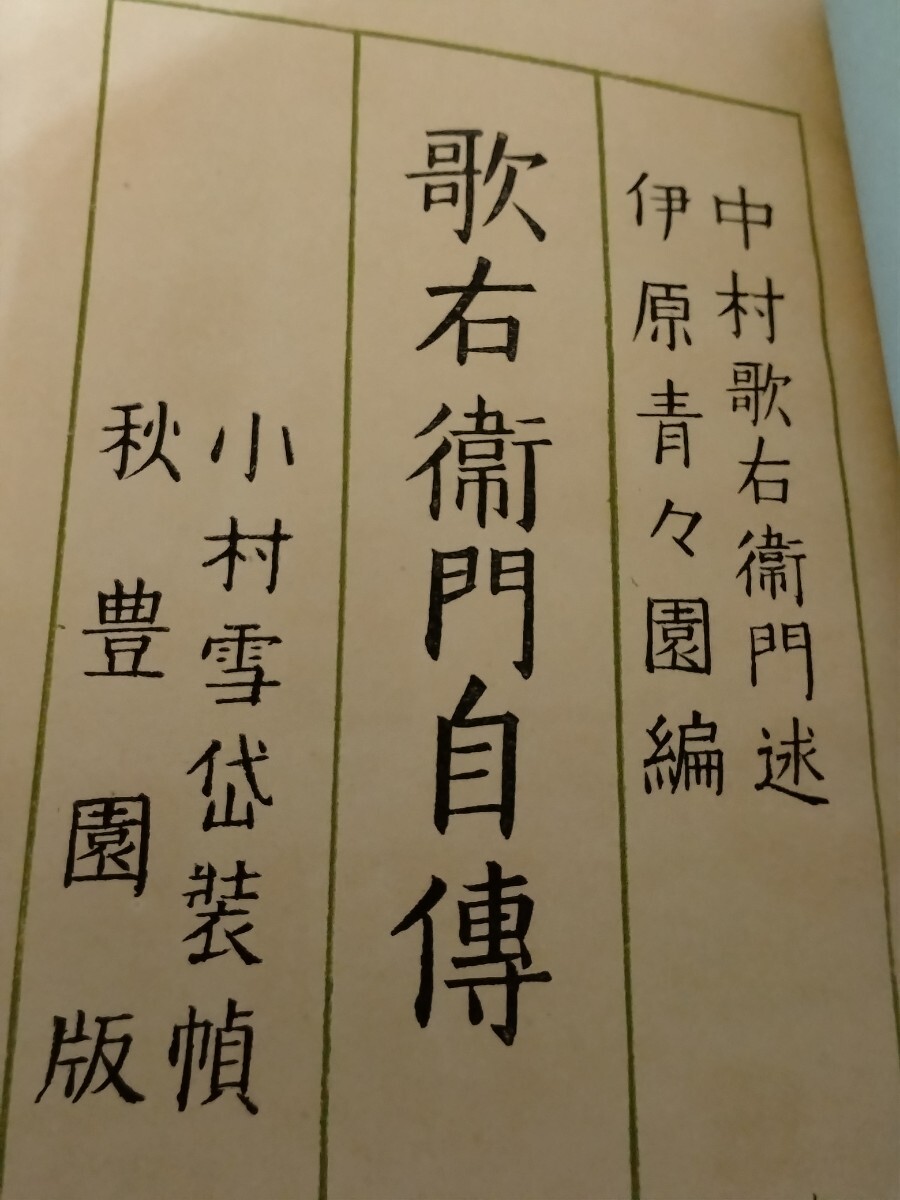 中村歌右衞門述
伊原青々園編
歌右衞門自傳
小村雪岱装幀
秋豊園版